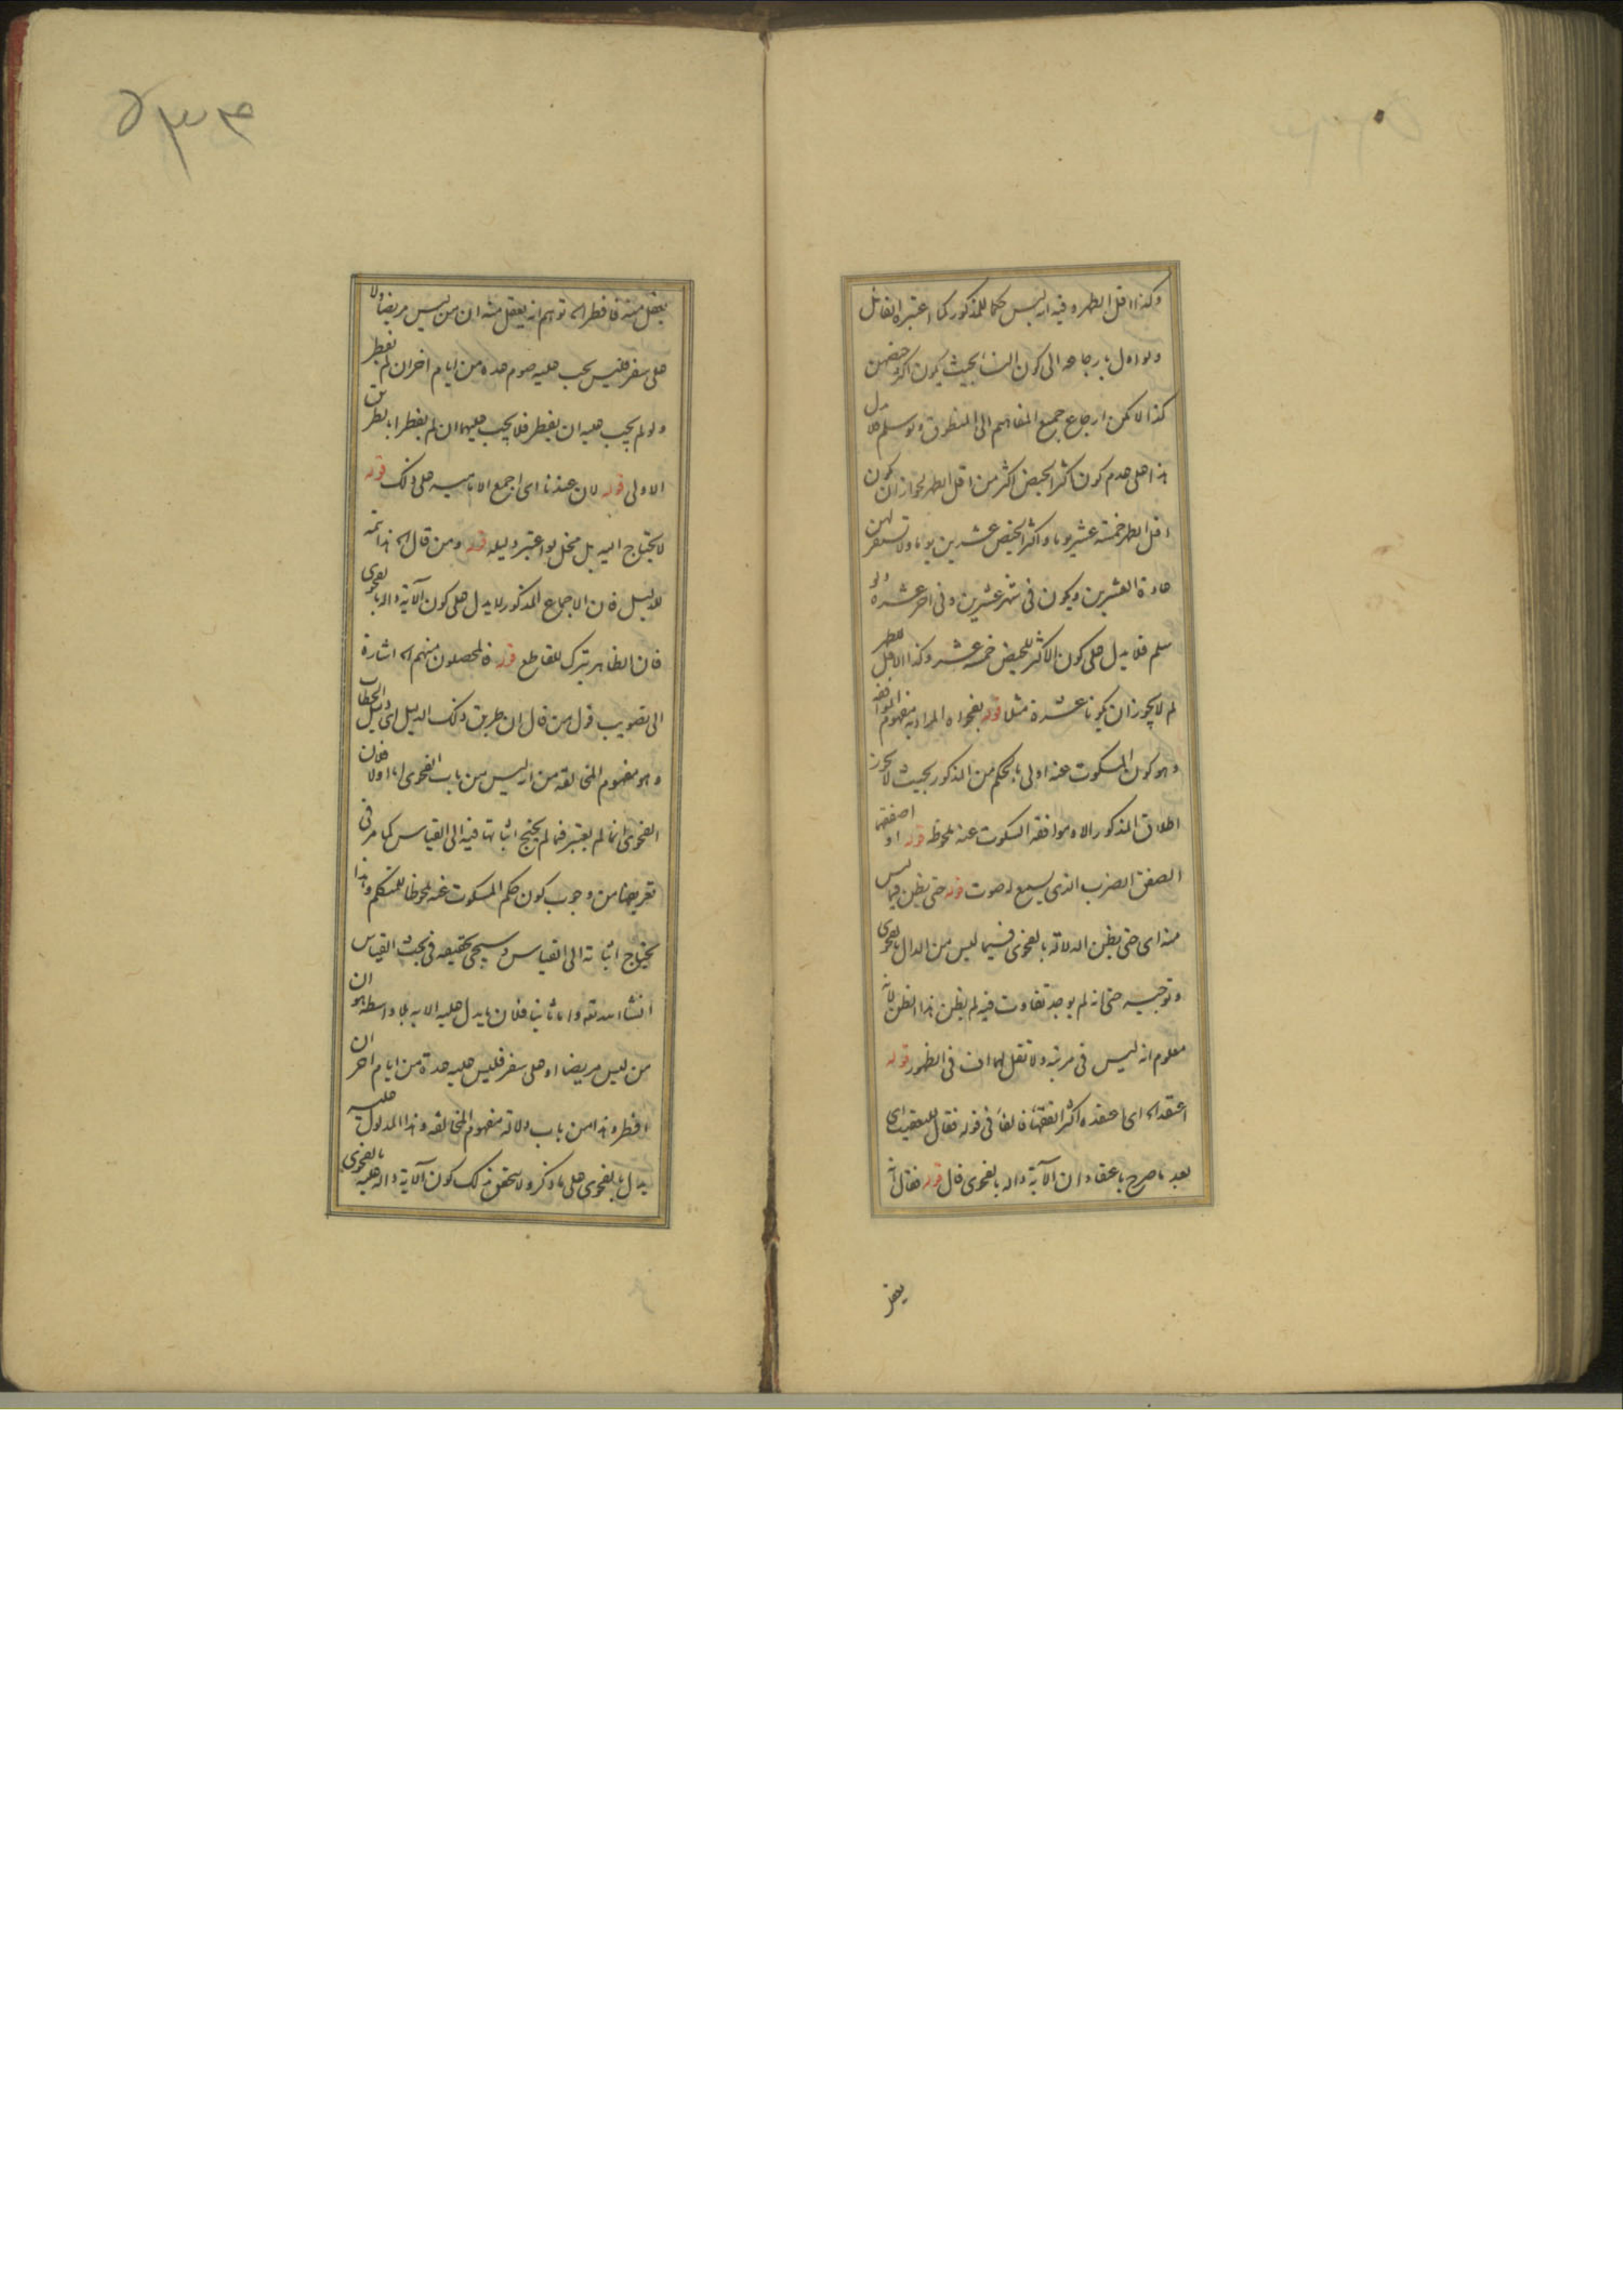 وكذا اقل الطهر وفيه انه ليس حكما للمذكور كما اعتبره القائل
ولو اول بارجاعه الى كون النساء بحيث يكون اكثر حيضهن
كذا لامكن ارجاع جميع المفاهيم الى المنطوق ولو سلم فلا يدل
هذا على عدم كون اكثر الحيض اكثر من اقل الطهر لجواز ان يكون
اقل الطهر خمسة عشر يوما واكثر الحيض عشرين يوما ولا تستقر لهن
عادة العشرين ويكون في شهر عشرين وفي اخر عشرة ولو
سلم فلا يدل على كون الاكثر للحيض خمسة عشر وكذا الاقل للطهر
لم لا يجوز ان يكونا عشرة مثلا قوله بفحواه المراد به مفهوم الموافقة
وهو كون المسكوت عنه اولى بالحكم من المذكور بحيث لا يجوز
اطلاق المذكور الا وموافقة المسكوت عنه ملحوظة قوله او اصفقهما
الصفق الضرب الذي يسمع له صوت قوله حتى يظن فيما ليس
منه اى حتى يظن الدلالة بالفحوى فيما ليس من الدال بالفحوى
وتوجيه حتى انه لم يوجد تفاوت فيه لم يظن هذا الظن لانه
معلوم انه ليس في مرتبة ولا تقل لهما اف في الظهور قوله
اعتقد الخ اى اعتقده اكثر الفقهاء فالفاء في قوله فقال للتعقيب اى
بعد ما صرح باعتقاد ان الآية دالة بالفحوى قال قوله فقال انه
يعقل
يعقل منه فافطر الخ توهم انه يعقل منه ان من ليس مريضا ولا
على سفر فليس يجب عليه صوم عدة من ايام اخر ان لم يفطر
ولو لم يجب عليه ان يفطر فلا يجب عليهما ان لم يفطرا بطريق
الاولى قوله لان عندنا اى اجمع الامامية على ذلك قوله
لا يحتاج اليه بل مخل لو اعتبر دليله قوله ومن قال الخ هذا تتمة
للدليل فان الاجماع المذكور لا يدل على كون الآية دالة بالفحوى
فان الظاهر يترك للقاطع قوله فالمحصلون منهم الخ اشارة
الى تصويب قول من قال ان طريق ذلك الدليل اى دليل الخطاب
وهو مفهوم المخالفة من انه ليس من باب الفحوى اما اولا فلان
الفحوى انما لم يعتبر فيما لم يحتج اثباتها فيه الى القياس كما مر في
تعريضنا من وجوب كون حكم المسكوت عنه ملحوظا للمتكلم وهذا
يحتاج اثباته الى القياس وسيجئ تحقيقه في بحث القياس
انشاء الله تعالى واما ثانيا فلان ما يدل عليه الاية بلا واسطة هو ان
من ليس مريضا او على سفر فليس عليه عدة من ايام اخر ان
افطر وهذا من باب دلالة مفهوم المخالفة وهذا المدلول عليه
يدل بالفحوى على ما ذكر ولا يتحقق بذلك كون الآية دالة عليه بالفحوى